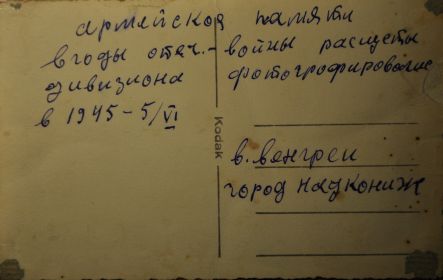 армейской памяти
в годы отеч.- войны расчеты
дивизиона фотографирование
в 1945-5/VI
Kodak
в. венгреи
город наукониж